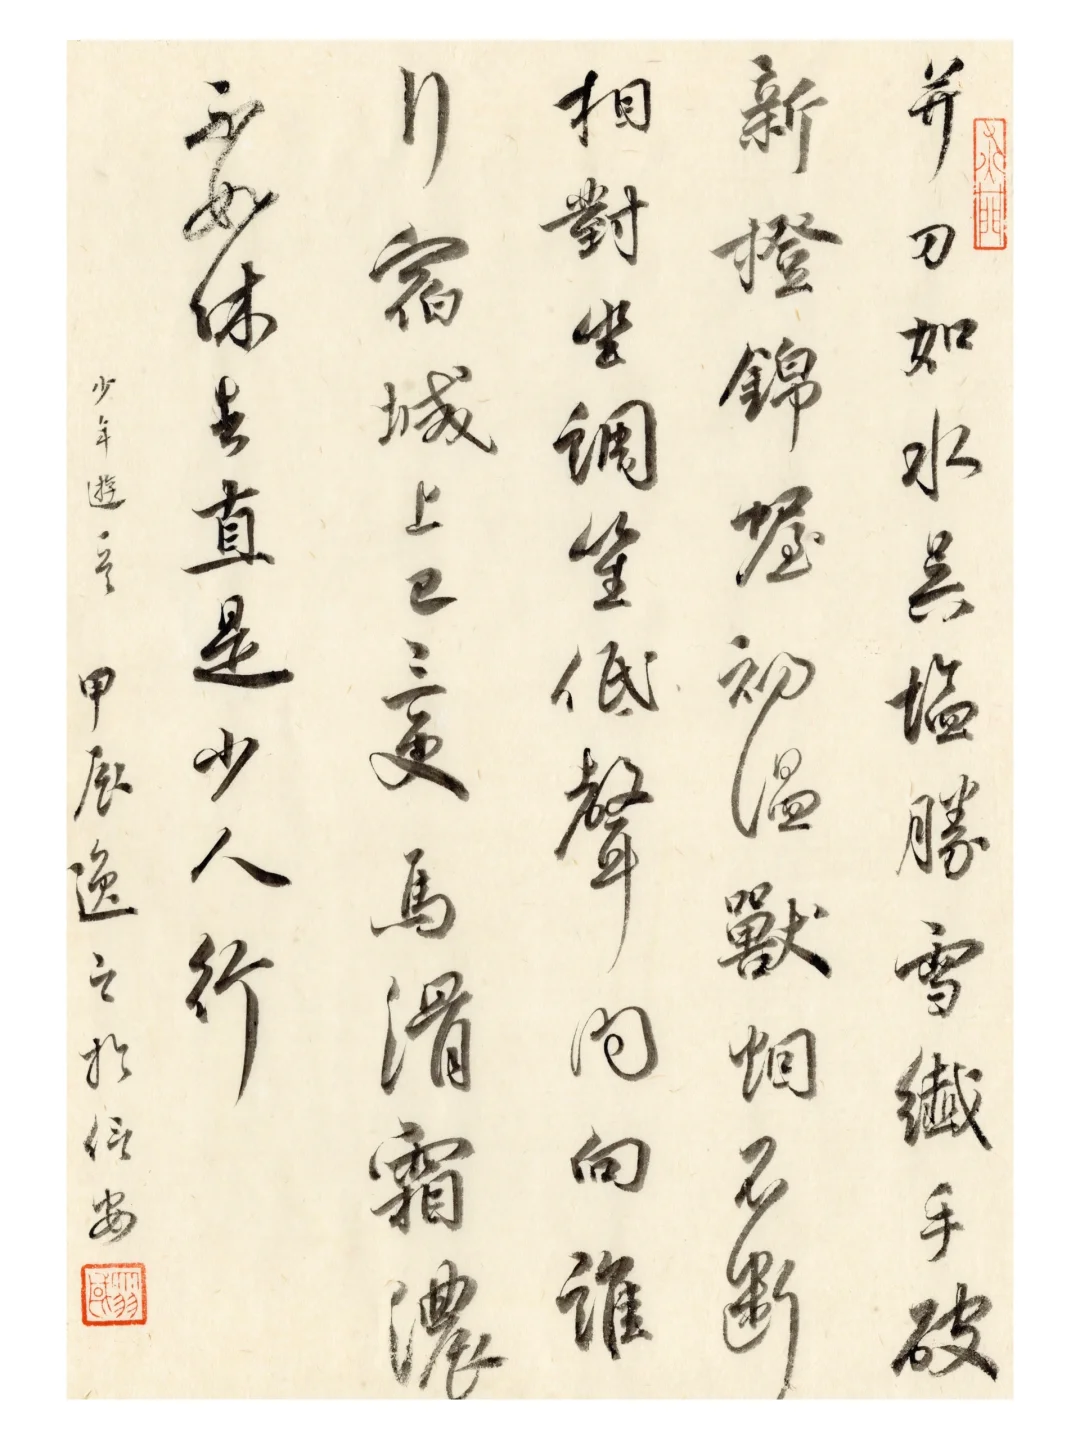 并刀如水吴塩勝雪纖手破
新橙錦幄初温獸烟不断
相對坐調笙低聲问向誰
行宿城上已三更馬滑霜濃
不如休去直是少人行
少年遊 甲辰逸之於信安